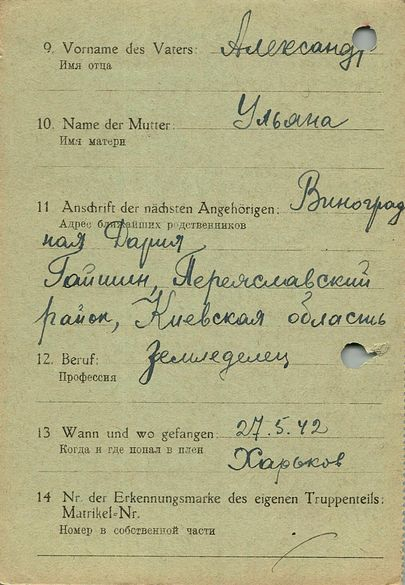 9. Vorname des Vaters: Александр
Имя отца
10. Name der Mutter: Ульяна
Имя матери
11 Anschrift der nächsten Angehörigen: Виноград
Адрес ближайших родственников
ная Дария
Гайшин, Переяславский
район, Киевская область
12. Beruf: Земледелец
Профессия
13 Wann und wo gefangen: 27.5.42
Когда и где попал в плен
Харьков
14 Nr. der Erkennungsmarke des eigenen Truppenteils:
Matrikel-Nr.
Номер в собственной части